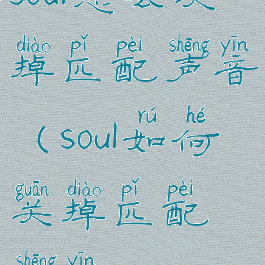 diào pǐ pèi shēng yīn
掉匹配声音
rú hé
(soul如何
guān diào pǐ pèi
关掉匹配
shēng yīn